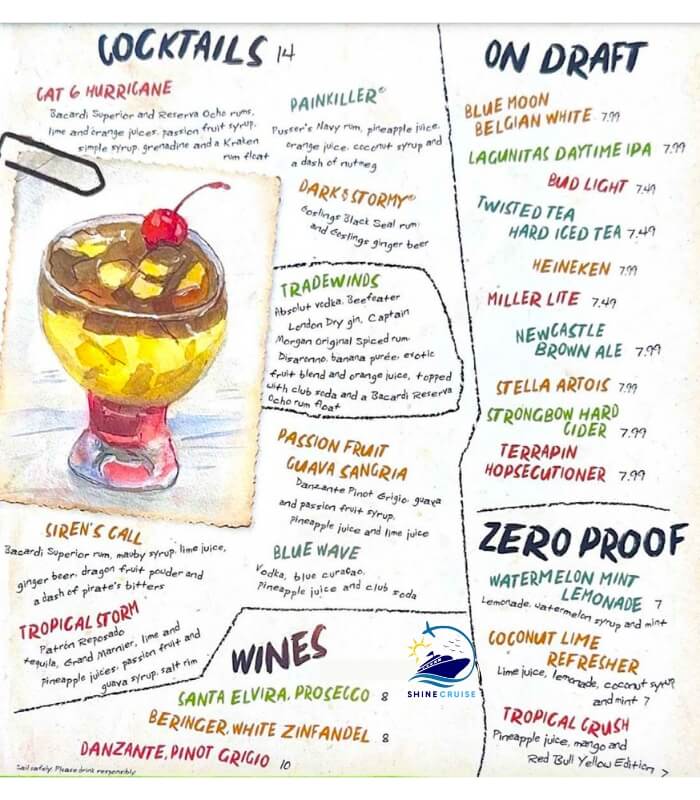 COCKTAILS 14
CAT 6 HURRICANE
Bacardi Superior and Reserva Ocho rums,
lime and orange juices, passion fruit syrup,
simple syrup, grenadine and a Kraken
rum float
PAINKILLER®
Pusser's Navy rum, pineapple juice,
orange juice, coconut syrup and
a dash of nutmeg
DARK & STORMY®
Goslings Black Seal rum
and Goslings ginger beer
TRADEWINDS
Absolut vodka, Beefeater
London Dry gin, Captain
Morgan Original Spiced rum
Disaronno, banana purée, exotic
fruit blend and orange juice, topped
with club soda and a Bacardi Reserva
Ocho rum float
PASSION FRUIT
GUAVA SANGRIA
Danzante Pinot Grigio, guava
and passion fruit syrup,
pineapple juice and lime juice
BLUE WAVE
Vodka, blue curaçao,
Pineapple juice and club soda
SIREN'S CALL
Bacardi Superior rum, mauby syrup, lime juice,
ginger beer, dragon fruit powder and
a dash of pirate's bitters
TROPICAL STORM
Patrón Reposado
tequila, Grand Marnier, lime and
pineapple juices, passion fruit and
guava syrup, salt rim
WINES
SANTA ELVIRA, PROSECCO 8
BERINGER, WHITE ZINFANDEL 8
DANZANTE, PINOT GRIGIO 10
Sail safely. Please drink responsibly.
SHINE CRUISE
ON DRAFT
BLUE MOON
BELGIAN WHITE 7.99
LAGUNITAS DAYTIME IPA 7.99
BUD LIGHT 7.49
TWISTED TEA
HARD ICED TEA 7.49
HEINEKEN 7.99
MILLER LITE 7.49
NEWCASTLE
BROWN ALE 7.99
STELLA ARTOIS 7.99
STRONGBOW HARD
CIDER 7.99
TERRAPIN
HOPSECUTIONER 7.99
ZERO PROOF
WATERMELON MINT
LEMONADE 7
Lemonade, watermelon syrup and mint
COCONUT LIME
REFRESHER
Lime juice, lemonade, coconut syrup
and mint 7
TROPICAL CRUSH
Pineapple juice, mango and
Red Bull Yellow Edition 7